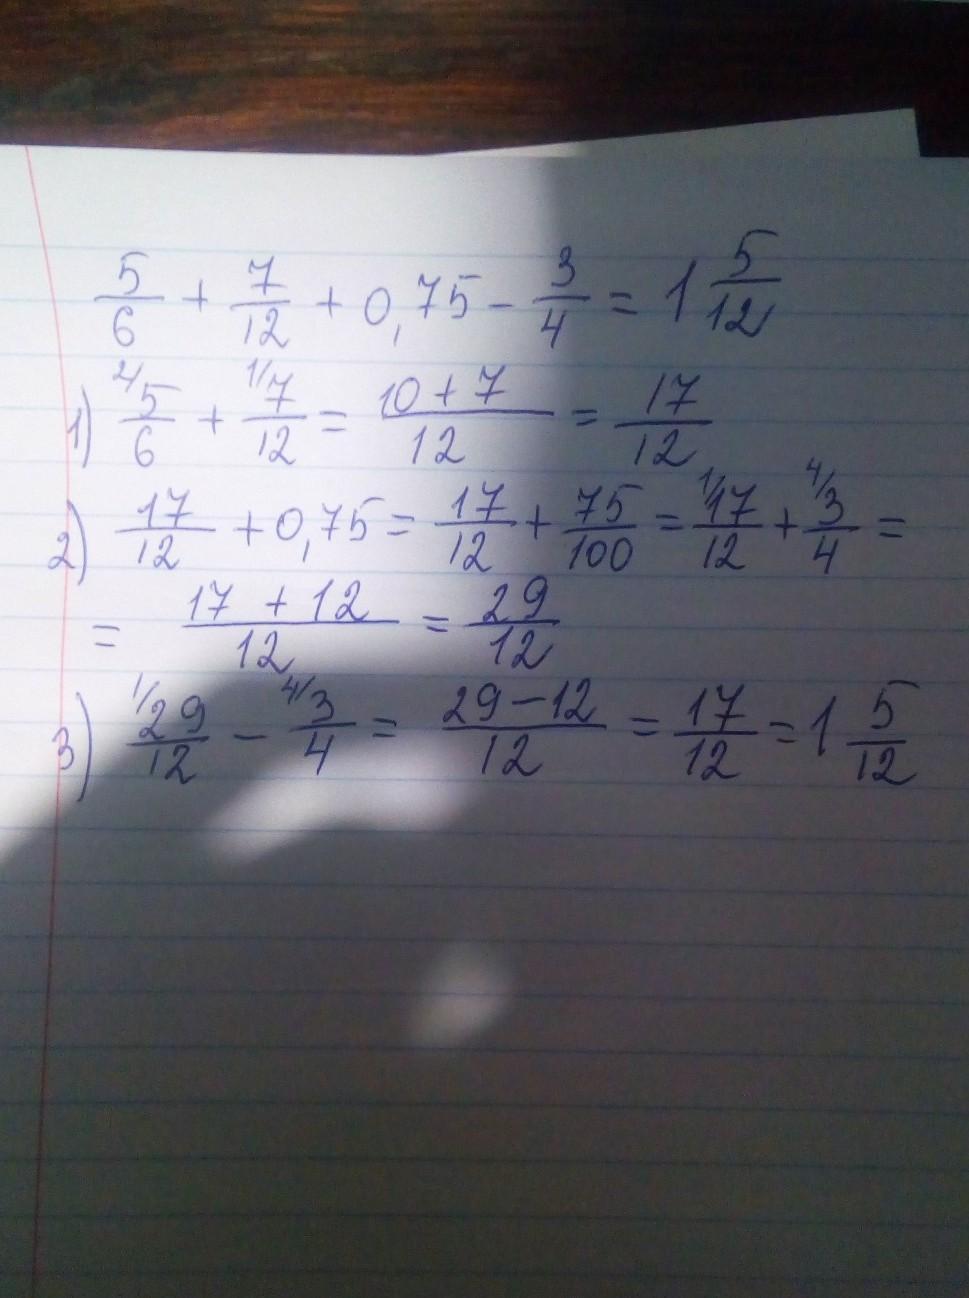 5/6 + 7/12 + 0,75 - 3/4 = 1 5/12
1) 2/ 5/6 + 1/ 7/12 = (10 + 7)/12 = 17/12
2) 17/12 + 0,75 = 17/12 + 75/100 = 1/ 17/12 + 4/ 3/4 =
= (17 + 12)/12 = 29/12
3) 1/ 29/12 - 4/ 3/4 = (29 - 12)/12 = 17/12 = 1 5/12